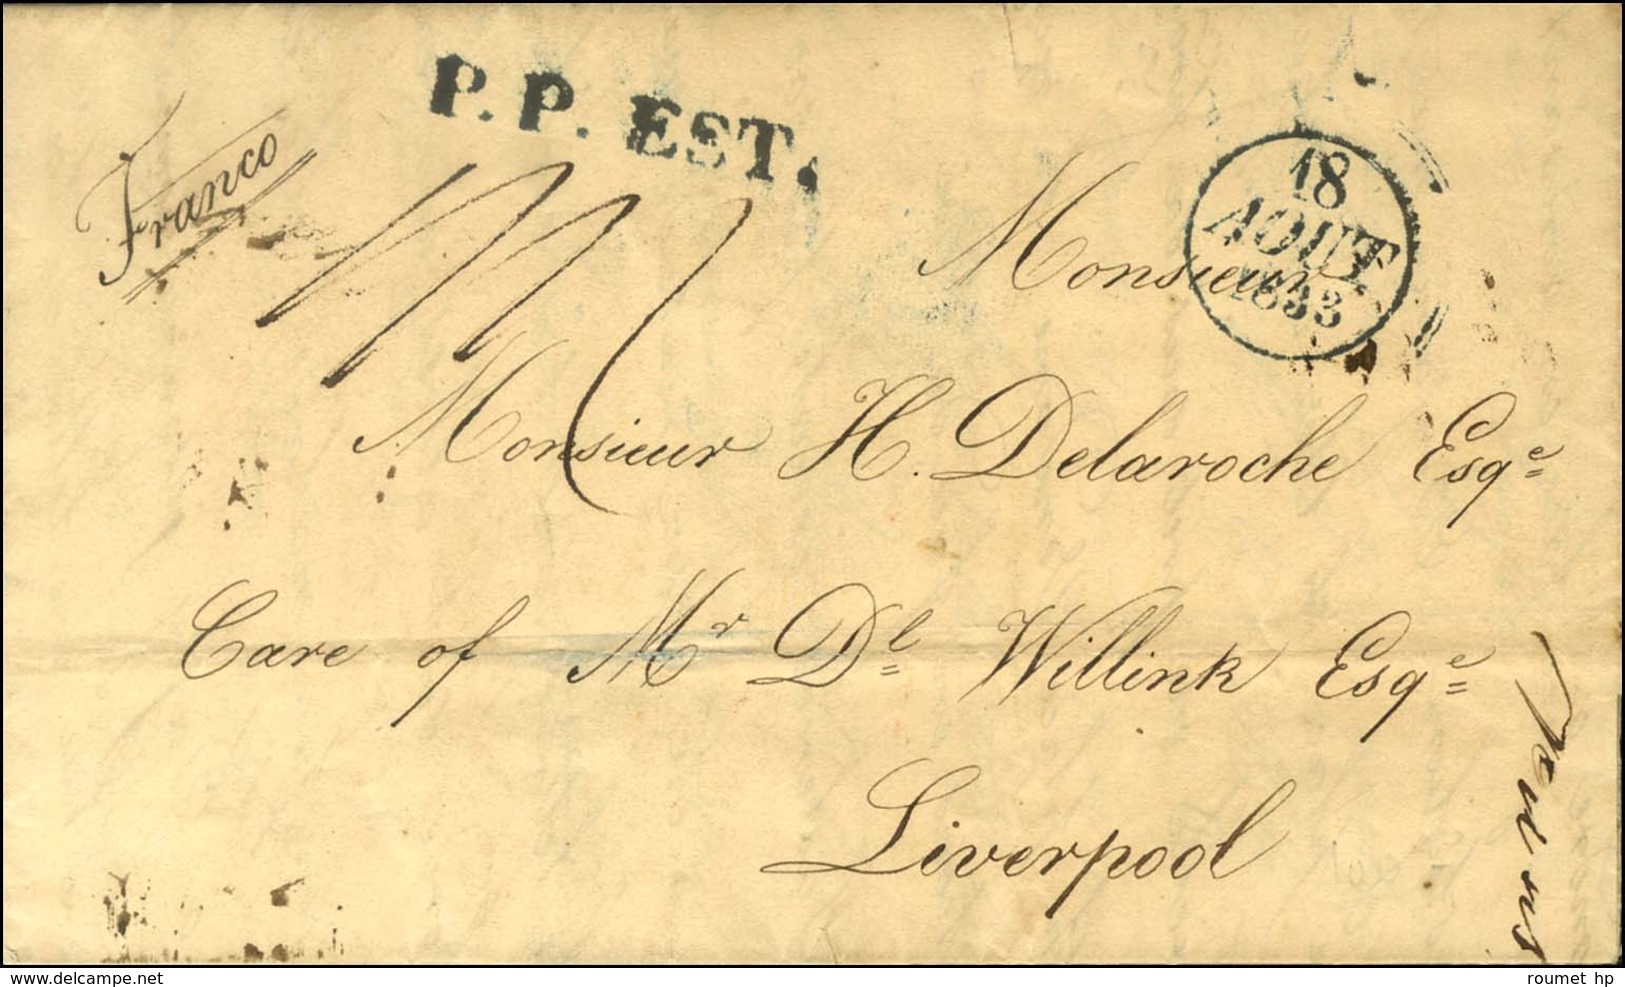 P.P. EST.
Franco
18
AOUT
1833
Monsieur
Monsieur H. Delaroche Esqe
Care of Mr Dl Willink Esqe
Liverpool
www.delcampe.net
roumet hp